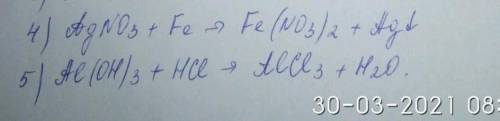 4) AgNO3 + Fe → Fe(NO3)2 + Ag↓
5) Al(OH)3 + HCl → AlCl3 + H2O.
30-03-2021 08: